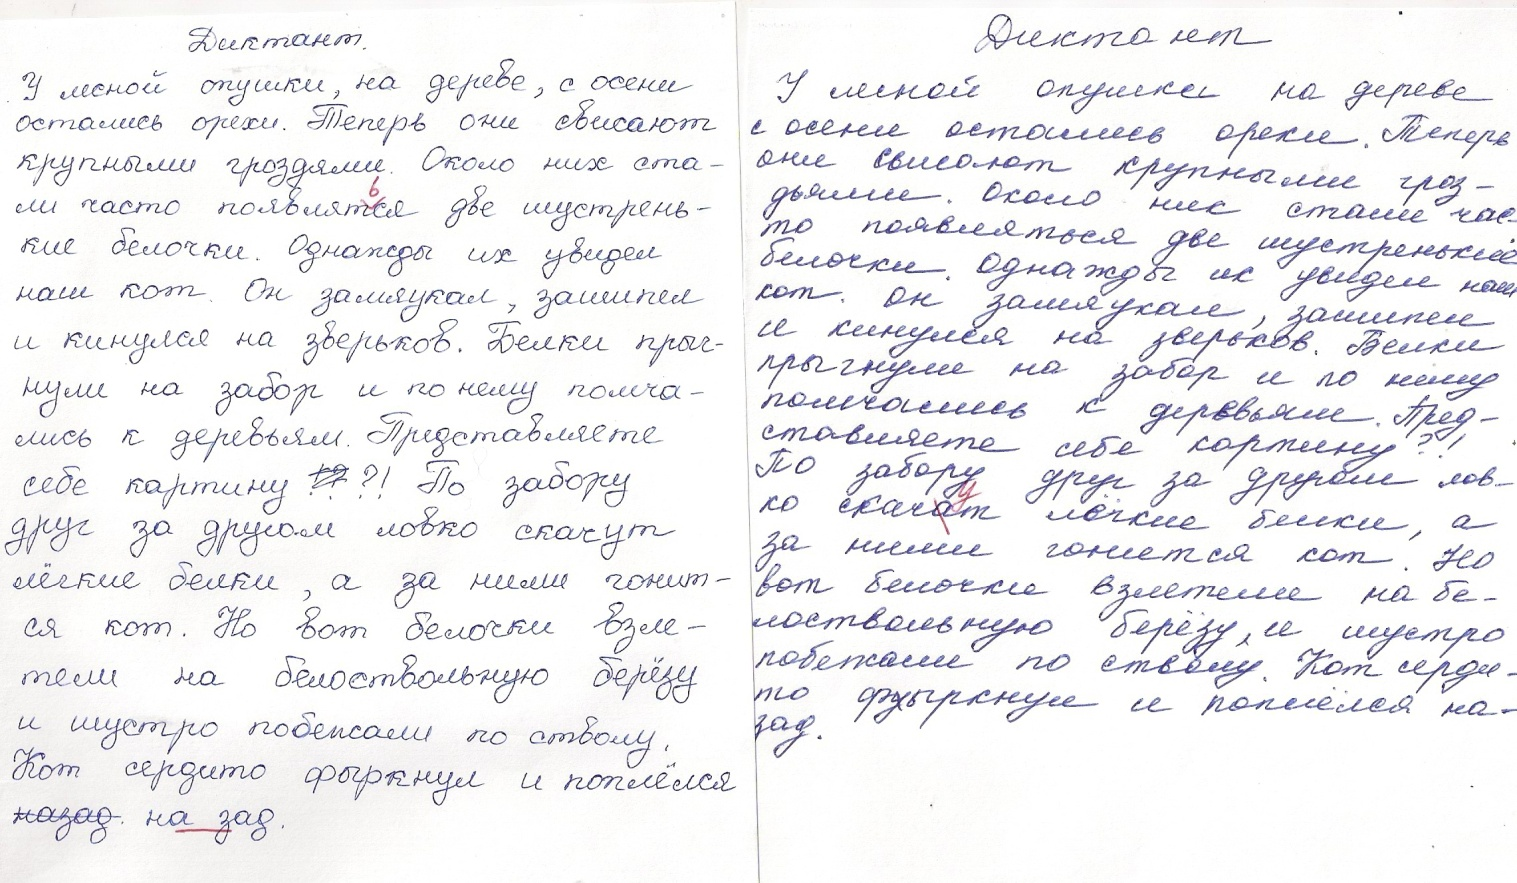 Диктант.
У лесной опушки, на дереве, с осени
остались орехи. Теперь они свисают
крупными гроздями. Около них ста-
ь
ли часто появлятся две шустрень-
кие белочки. Однажды их увидел
наш кот. Он замяукал, зашипел
и кинулся на зверьков. Белки прыг-
нули на забор и по нему помча-
лись к деревьям. Представляете
себе картину ?! По забору
друг за другом ловко скачут
лёгкие белки, а за ними гонит-
ся кот. Но вот белочки взле-
тели на белоствольную берёзу
и шустро побежали по стволу.
Кот сердито фыркнул и поплёлся
назад. на зад.
Диктант
У лесной опушки на дереве
с осени остались орехи. Теперь
они свисают крупными гроз-
дьями. Около них стали час-
то появляться две шустренькие
белочки. Однажды их увидел наш
кот. Он замяукал, зашипел
и кинулся на зверьков. Белки
прыгнули на забор и по нему
помчались к деревьям. Пред-
ставляете себе картину?!
По забору друг за другом лов-
у
ко скачат лёгкие белки, а
за ними гонится кот. Но
вот белочки взлетели на бе-
лоствольную берёзу, и шустро
побежали по стволу. Кот серди-
то фыркнул и поплёлся на-
зад.